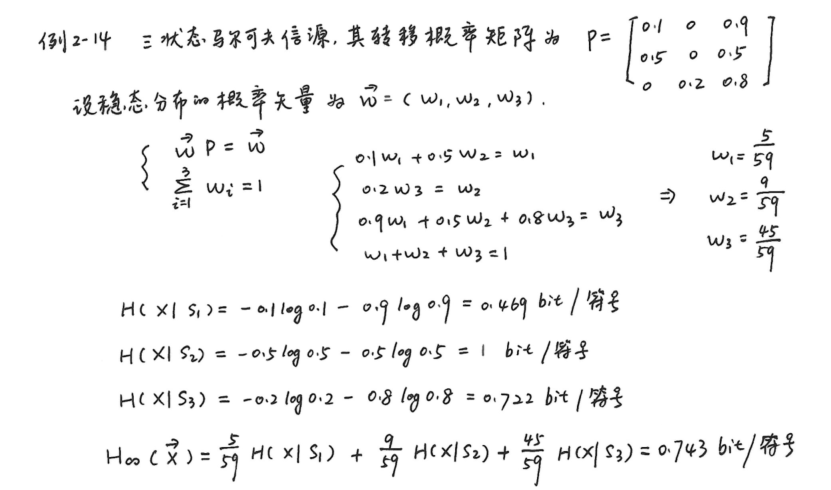 例2-14 三状态马尔可夫信源,其转移概率矩阵为 P= [0.1 0 0.9
0.5 0 0.5
0 0.2 0.8]
设稳态分布的概率矢量为 w⃗=(w₁,w₂,w₃).
{ w⃗P=w⃗
∑_{i=1}^{3} wᵢ=1
{ 0.1w₁+0.5w₂=w₁
0.2w₃=w₂
0.9w₁+0.5w₂+0.8w₃=w₃
w₁+w₂+w₃=1
⇒ w₁=5/59
w₂=9/59
w₃=45/59
H(X|S₁)=-0.1log0.1-0.9log0.9=0.469 bit/符号
H(X|S₂)=-0.5log0.5-0.5log0.5=1 bit/符号
H(X|S₃)=-0.2log0.2-0.8log0.8=0.722 bit/符号
H∞(X⃗)=5/59 H(X|S₁)+9/59 H(X|S₂)+45/59 H(X|S₃)=0.743 bit/符号